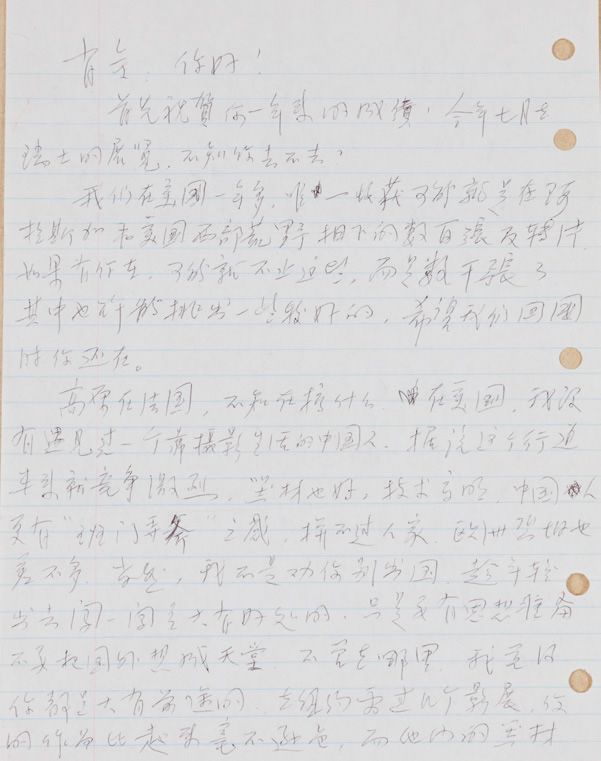 肖全：你好！
首先祝賀你一年来的成績，今年七月在
瑞士的展覽，不知你去不去。
我们在美國一年多，唯一收获可能就是在阿
拉斯加和美國西部荒野拍下的數百張反轉片
如果有汽車，可能就不止这些，而是數千張了
其中也许能挑出一些較好的，希望我们回國
时你还在。
高原在法國，不知在搞什么，在美國，我没
有遇見过一个靠攝影生活的中国人，据说这个行道
本来就競争激烈，器材也好，技术高明，中国人
更有“班门弄斧”之感，拼不过人家，欧洲恐怕也
差不多，当然，我不是劝你别出国，趁年轻
出去闯一闯是大有好处的，只是要有思想准备
不要把国外想成天堂，不管在哪里，我不得
你都是大有前途的，在纽约看过几个影展，你
的作品比起来毫不遜色，而他们的器材